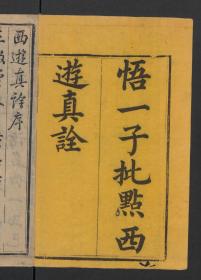 悟一子批點西
遊真詮
西遊真詮序